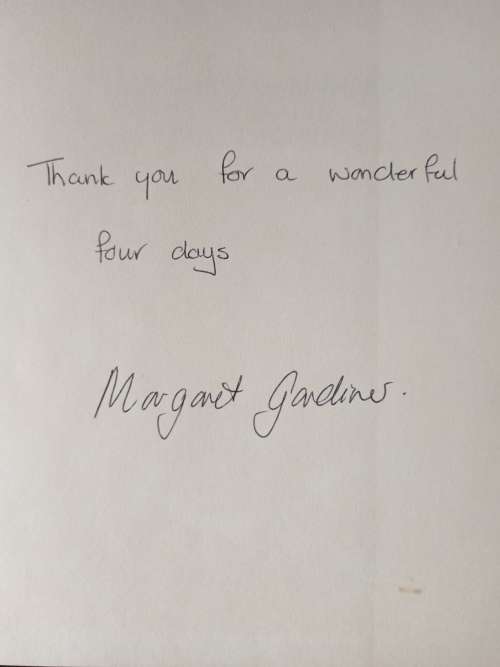 Thank you for a wonderful
four days
Margaret Gardiner.